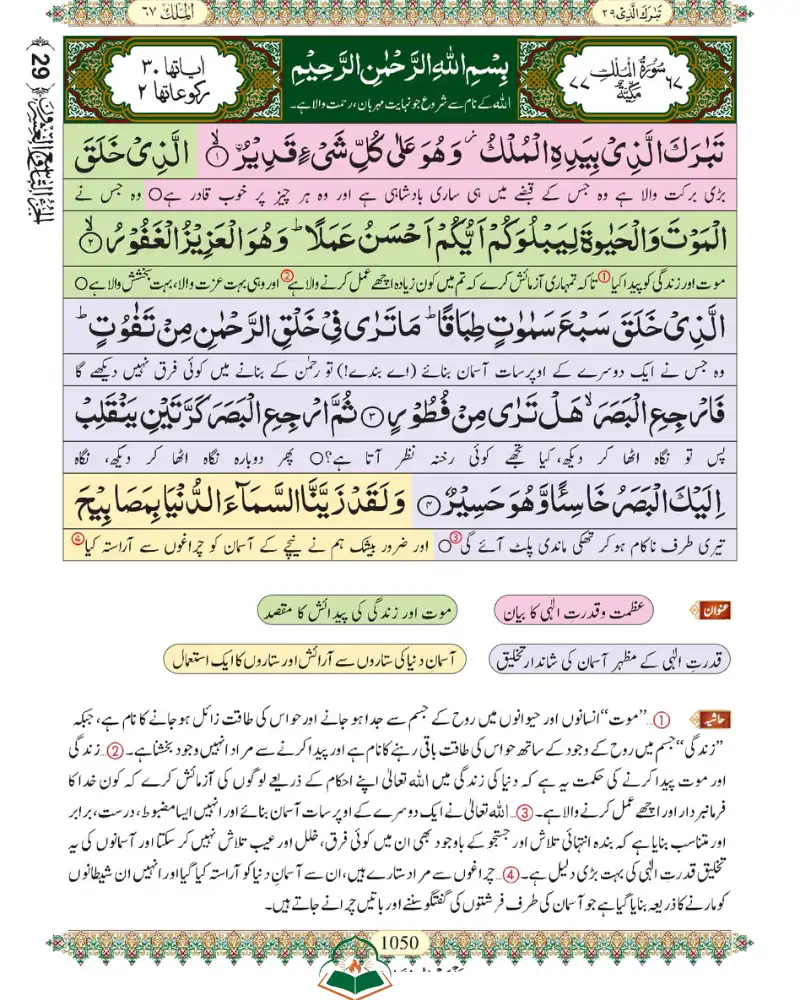 تَبٰرَكَ الَّذِیْ ٢٩
اَلْمُلْك ٦٧
29
سُوْرَۃُ الْمُلْكِ مَكِّیَّۃٌ
٦٧
٧٧
بِسْمِ اللّٰهِ الرَّحْمٰنِ الرَّحِیْمِ
اللہ کے نام سے شروع جو نہایت مہربان، رحمت والا ہے۔
اٰیاتها ٣٠
رکوعاتها ٢
تَبٰرَكَ الَّذِیْ بِیَدِهِ الْمُلْكُ ؗ وَ هُوَ عَلٰى كُلِّ شَیْءٍ قَدِیْرُۙ ﴿۱﴾ الَّذِیْ خَلَقَ
بڑی برکت والا ہے وہ جس کے قبضے میں ہی ساری بادشاہی ہے اور وہ ہر چیز پر خوب قادر ہے ○ وہ جس نے
الْمَوْتَ وَ الْحَیٰوةَ لِیَبْلُوَكُمْ اَیُّكُمْ اَحْسَنُ عَمَلًاؕ وَ هُوَ الْعَزِیْزُ الْغَفُوْرُۙ ﴿۲﴾
موت اور زندگی کو پیدا کیا ① تاکہ تمہاری آزمائش کرے کہ تم میں کون زیادہ اچھے عمل کرنے والا ہے ② اور وہی بہت عزت والا، بہت بخشش والا ہے ○
الَّذِیْ خَلَقَ سَبْعَ سَمٰوٰتٍ طِبَاقًاؕ مَا تَرٰى فِیْ خَلْقِ الرَّحْمٰنِ مِنْ تَفٰوُتٍؕ
وہ جس نے ایک دوسرے کے اوپر سات آسمان بنائے (اے بندے!) تو رحمٰن کے بنانے میں کوئی فرق نہیں دیکھے گا
فَارْجِعِ الْبَصَرَۙ هَلْ تَرٰى مِنْ فُطُوْرٍ ﴿۳﴾ ثُمَّ ارْجِعِ الْبَصَرَ كَرَّتَیْنِ یَنْقَلِبْ
پس تو نگاہ اٹھا کر دیکھ، کیا تجھے کوئی رخنہ نظر آتا ہے؟ ○ پھر دوبارہ نگاہ اٹھا کر دیکھ، نگاہ
اِلَیْكَ الْبَصَرُ خَاسِئًا وَّ هُوَ حَسِیْرٌ ﴿۴﴾ وَ لَقَدْ زَیَّنَّا السَّمَآءَ الدُّنْیَا بِمَصَابِیْحَ
تیری طرف ناکام ہو کر تھکی ماندی پلٹ آئے گی ③ ○ اور ضرور بیشک ہم نے نیچے کے آسمان کو چراغوں سے آراستہ کیا ④
عنوان
عظمت و قدرت الٰہی کا بیان
موت اور زندگی کی پیدائش کا مقصد
قدرتِ الٰہی کے مظہر آسمان کی شاندار تخلیق
آسمانِ دنیا کی ستاروں سے آرائش اور ستاروں کا ایک استعمال
حاشیہ ①...”موت“ انسانوں اور حیوانوں میں روح کے جسم سے جدا ہو جانے اور حواس کی طاقت زائل ہو جانے کا نام ہے، جبکہ
”زندگی“ جسم میں روح کے وجود کے ساتھ حواس کی طاقت باقی رہنے کا نام ہے اور پیدا کرنے سے مراد انہیں وجود بخشنا ہے۔ ②...زندگی
اور موت پیدا کرنے کی حکمت یہ ہے کہ دنیا کی زندگی میں اللہ تعالیٰ اپنے احکام کے ذریعے لوگوں کی آزمائش کرے کہ کون خدا کا
فرمانبردار اور اچھے عمل کرنے والا ہے۔ ③...اللہ تعالیٰ نے ایک دوسرے کے اوپر سات آسمان بنائے اور انہیں ایسا مضبوط، درست، برابر
اور متناسب بنایا ہے کہ بندہ انتہائی تلاش اور جستجو کے باوجود بھی ان میں کوئی فرق، خلل اور عیب تلاش نہیں کر سکتا اور آسمانوں کی یہ
تخلیق قدرتِ الٰہی کی بہت بڑی دلیل ہے۔ ④...چراغوں سے مراد ستارے ہیں، ان سے آسمانِ دنیا کو آراستہ کیا گیا اور انہیں ان شیطانوں
کو مارنے کا ذریعہ بنایا گیا ہے جو آسمان کی طرف فرشتوں کی گفتگو سننے اور باتیں چرانے جاتے ہیں۔
1050